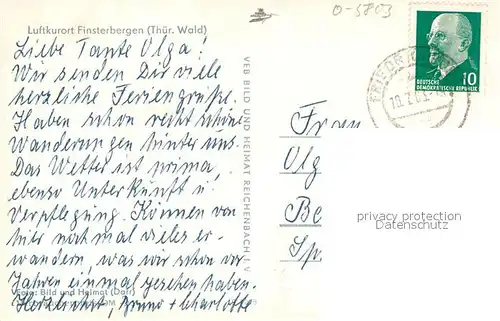 Luftkurort Finsterbergen (Thür. Wald)
Liebe Tante Olga!
Wir senden Dir viele
herzliche Feriengrüße.
Haben schon recht schöne
Wanderungen hinter uns.
Das Wetter ist prima,
ebenso Unterkunft u.
Verpflegung. Können von
hier noch mal vieles er-
wandern, was wir schon vor
Jahren einmal gesehen haben.
Herzlichst, Bruno + Charlotte
Foto: Bild und Heimat (Dorr)
VEB BILD UND HEIMAT REICHENBACH I. V
0-5803
DEUTSCHE
DEMOKRATISCHE REPUBLIK
10
Frau
Olg
Be
Sp.
privacy protection
Datenschutz